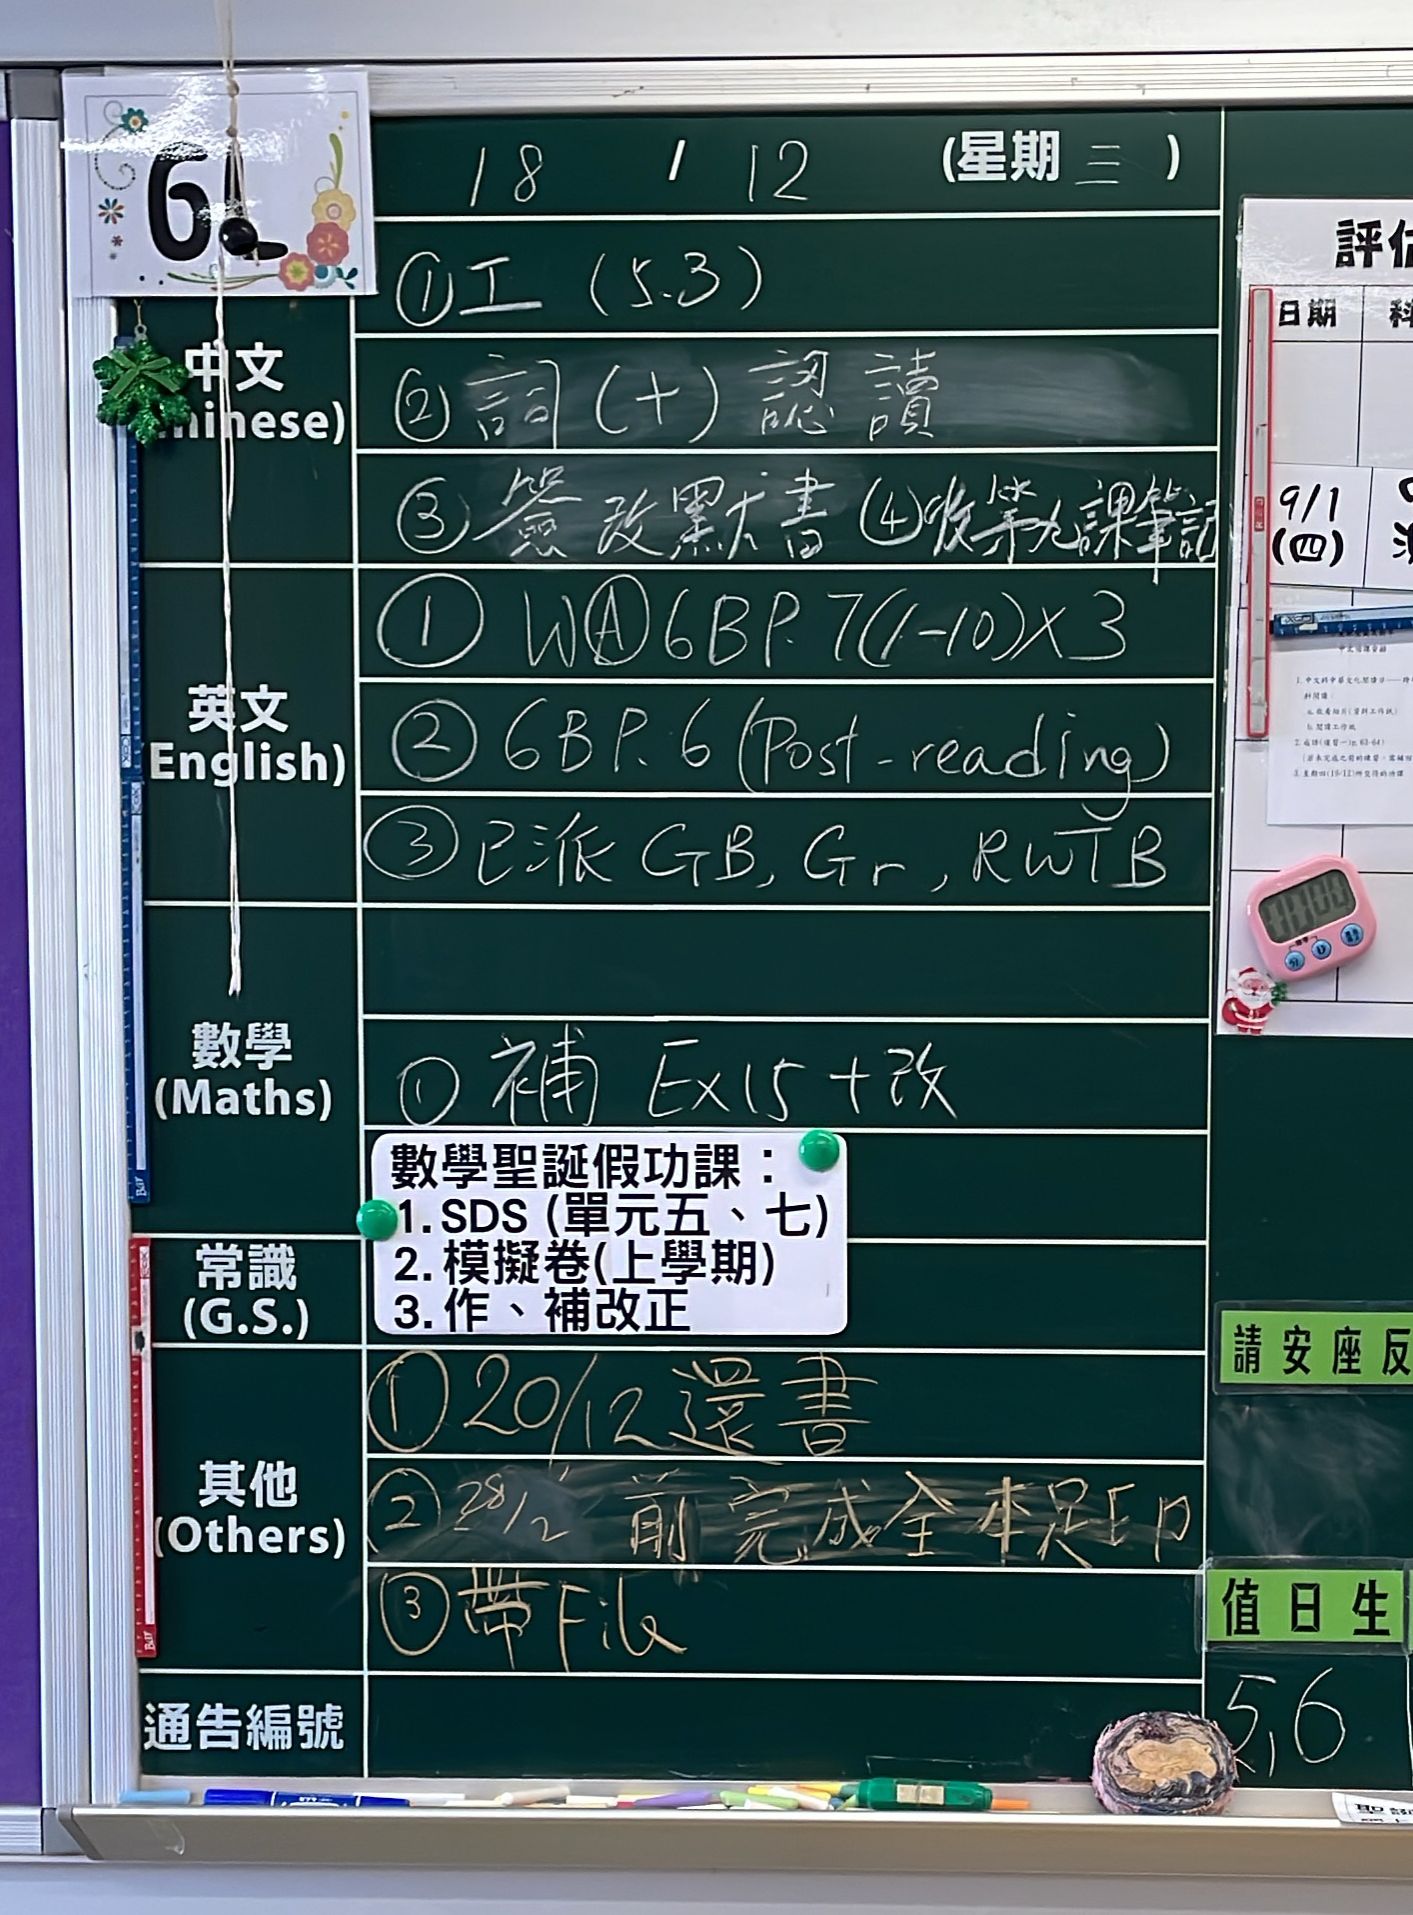 6L
18 / 12 (星期三)
①工 (5.3)
中文
(Chinese)
②詞(十)認讀
③簽改默書 ④收第九課筆記
英文
(English)
① WⒶ6BP.7(1-10)×3
② 6BP.6 (Post-reading)
③已派 GB, Gr, RWTB
數學
(Maths)
① 補 Ex15+改
數學聖誕假功課：
1. SDS (單元五、七)
2. 模擬卷(上學期)
3. 作、補改正
常識
(G.S.)
其他
(Others)
①20/12還書
②28/2前完成全本足印
③帶File
通告編號
評估
日期
9/1
(四)
請安座
值日生
5,6